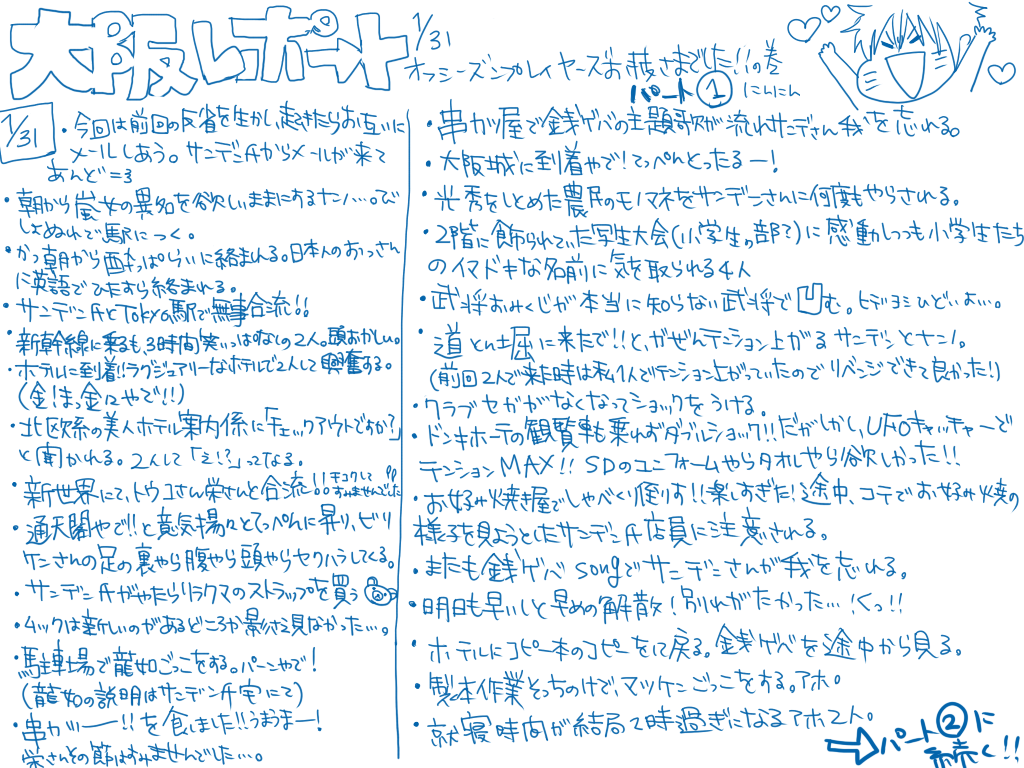 大阪レポート 1/31
オフシーズンプレイヤーズお疲さまでした!!の巻
パート① にんにん
1/31
・今回は前回の反省を生かし、起きたらお互いに
メールしあう。サンデン丹からメールが来て
あんど=3
・朝から嵐女の異名を欲しいままにするナン・・・。び
しょぬれで駅につく。
・かつ朝から酔っぱらいに絡まれる。日本人のおっさん
に英語でひたすら絡まれる。
・サンデン丹とTokyo駅で無事合流!!
・新幹線に乗るも、3時間笑いっぱなしの2人。頭おかしい。
・ホテルに到着!!ラグジュアリーなホテルで2人して興奮する。
(金ぱっ金にやで!!)
・北欧系の美人ホテル案内係に「チェックアウトですか?」
と聞かれる。2人して「え!?」ってなる。
・新世界にて、トウコさん栄さんと合流!!チコクして
すみませんでした!!
・通天閣やで!!と意気揚々とてっぺんに昇り、ビリ
ケンさんの足の裏やら腹やら頭やらセクハラしてくる。
・サンデン丹がやたらリラクマのストラップを買う
・ムックは新しいのがあるどころか影さえ見なかった…。
・駐車場で龍如ごっこをする。パーンやで!
(龍如の説明はサンデン丹宅にて)
・串カツー!!を食しました!!うまうまー!
栄さんその節はすみませんでした…。
・串カツ屋で銭ゲバの主題歌が流れサンデさん我を忘れる。
・大阪城に到着やで!てっぺんとったるー!
・光秀をしとめた農民のモノマネをサンデーさんに何度もやらされる。
・2階に飾られていた写生大会(小学生の部で)に感動しつつも小学生たち
のイマドキな名前に気を取られる4人
・武将おみくじが本当に知らない武将で凹む。ヒデヨシひどいよ…。
・道とん堀に来たで!!と、がぜんテンション上がるサンデンとナン!。
(前回2人で来た時は私1人でテンション上がっていたのでリベンジできて良かった!)
・クラブセガがなくなってショックをうける。
・ドンキホーテの観覧車も乗れずダブルショック!!だがしかし、UFOキャッチャーで
テンションMAX!!SDのユニフォームやらタオルやら欲しかった!!
・お好み焼き屋でしゃべくり倒す!!楽しすぎた!途中、コテでお好み焼の
様子を見ようとしたサンデン丹店員に注意される。
・またも銭ゲバsongでサンデンさんが我を忘れる。
・明日も早いしと早めの解散!別れがたかった…!くっ!!
・ホテルにコピー本のコピーをして戻る。銭ゲバを途中から見る。
・製本作業そっちのけで、マツケンごっこをする。アホ。
・就寝時間が結局2時過ぎになるアホ2人。
パート②に
続く!!